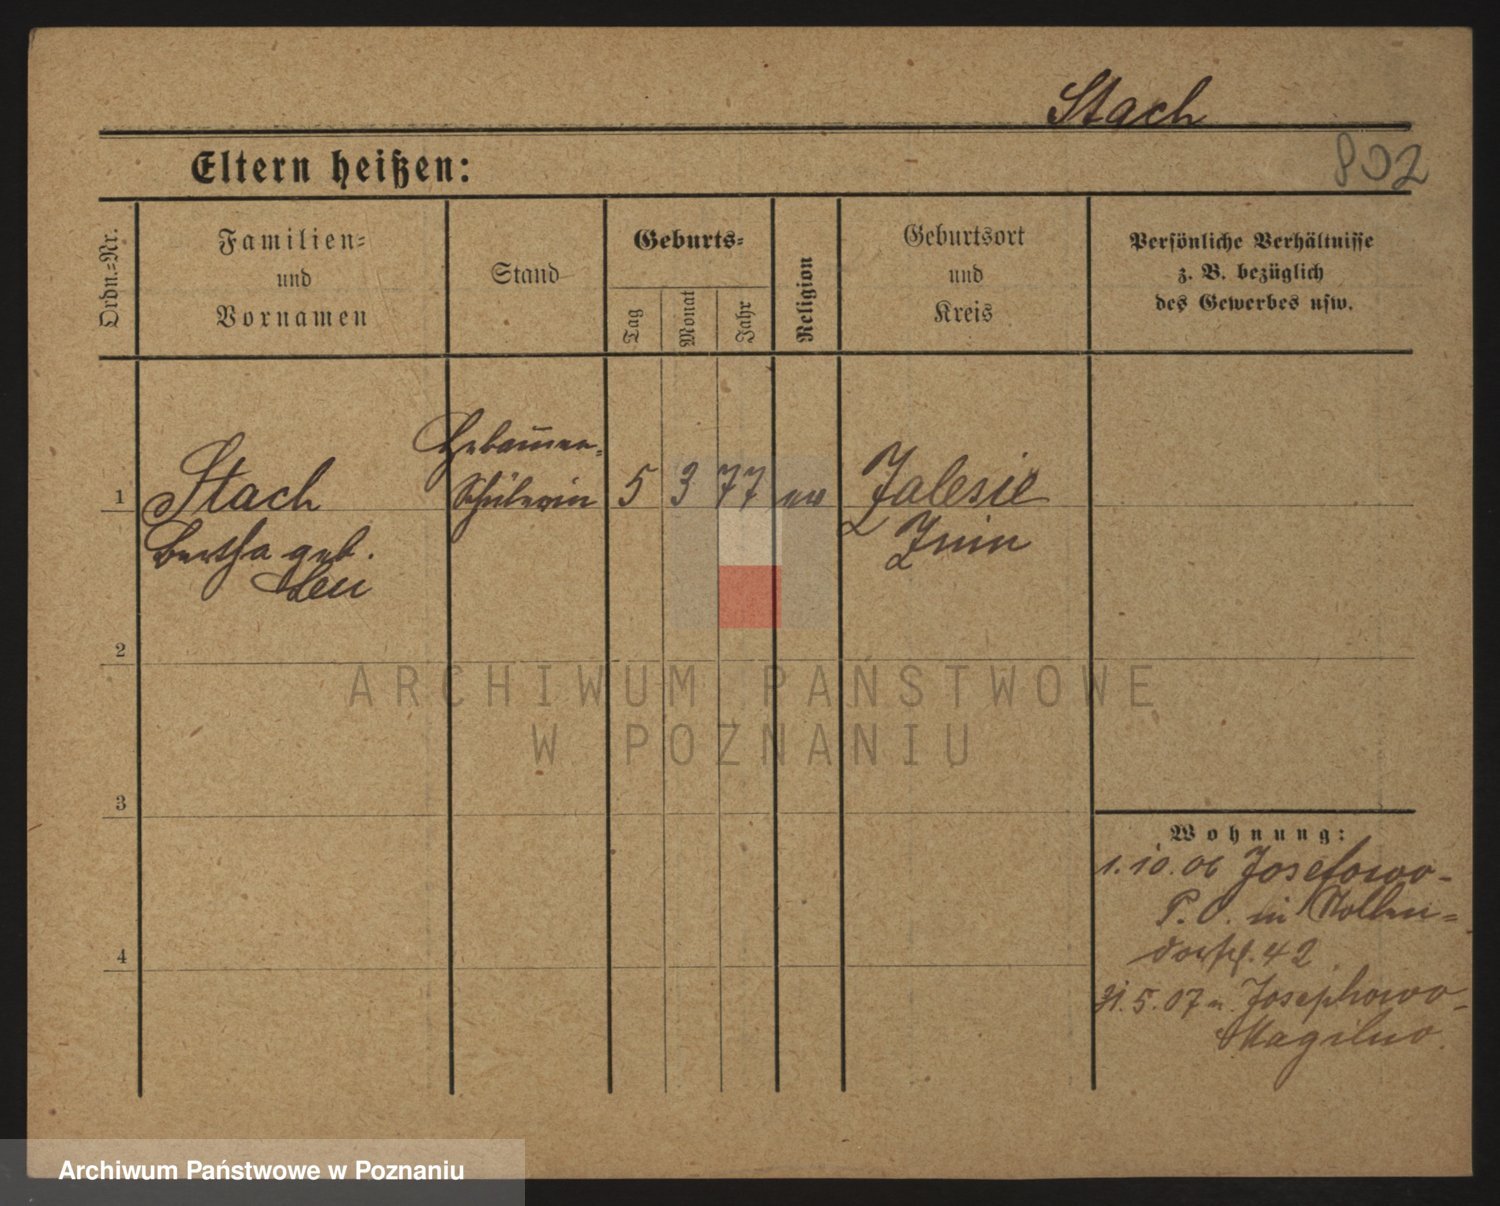 Stach
802
Eltern heißen:
Ordn.=Nr.
Familien=
und
Vornamen
Stand
Geburts=
Tag
Monat
Jahr
Religion
Geburtsort
und
Kreis
Persönliche Verhältnisse
z. B. bezüglich
des Gewerbes usw.
1
Stach
Bertha geb.
Leu
Hebammen-
Schülerin
5
3
77
ev
Zalesie
Znin
2
3
4
Wohnung:
1.10.06 Josefowo-
P. O. in Nollen=
dorfst. 42
31.5.07 n. Josephowo-
Mogilno.
ARCHIWUM PAŃSTWOWE
W POZNANIU
Archiwum Państwowe w Poznaniu